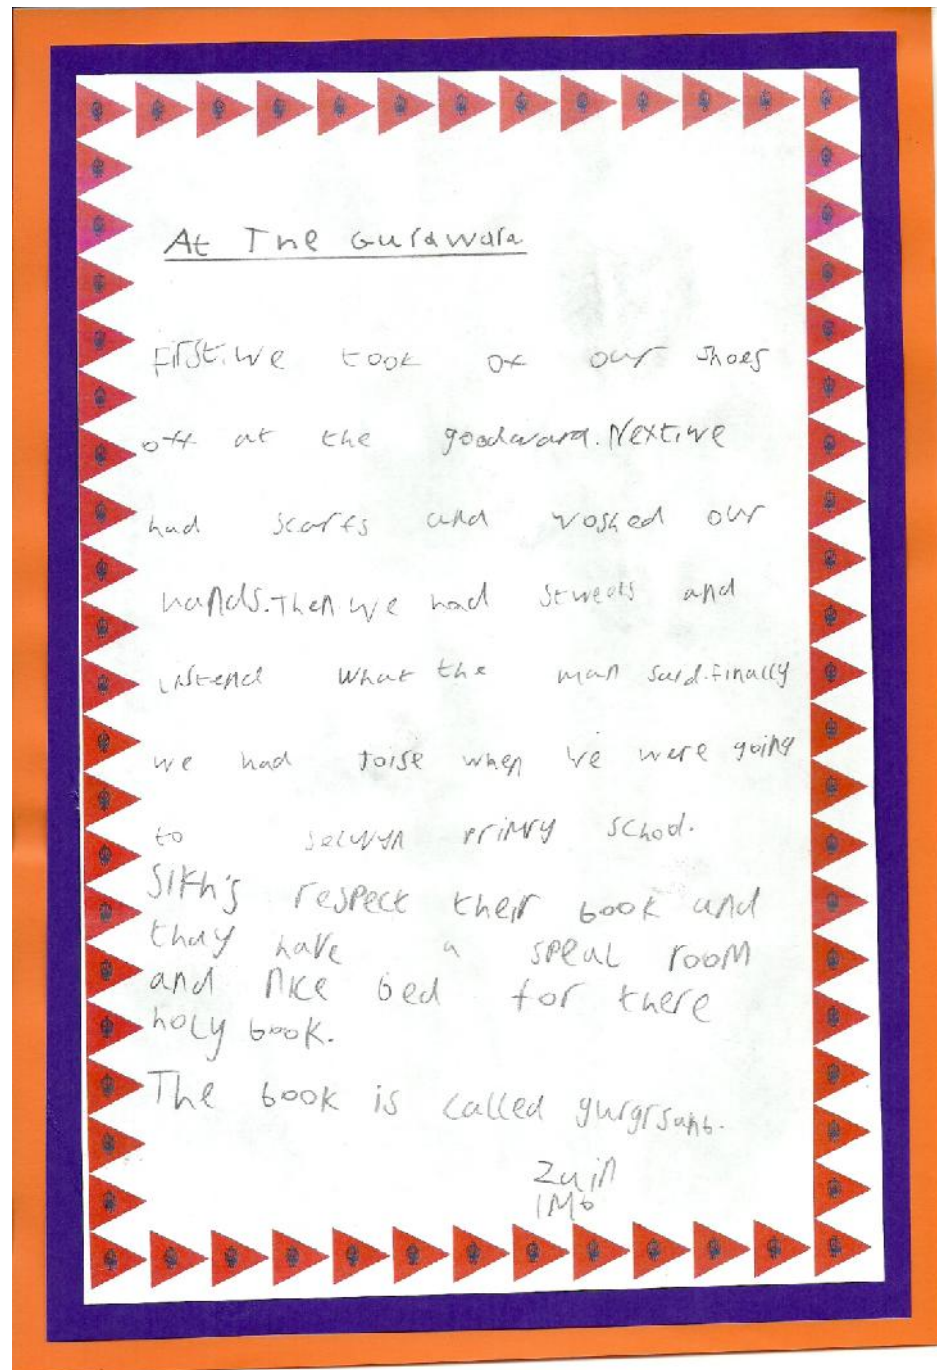 At The Gurdwara
First.we took of our shoes
off at the goodwara.Next.we
had scarfs and woshed our
hands.Then we had stweets and
listend what the man said.finally
we had joise when we were going
to selwyn primry school.
Sikh's respect their book and
thay have a speal room
and nice bed for there
holy book.
The book is called gurgrsanb.
Zain
1Mb